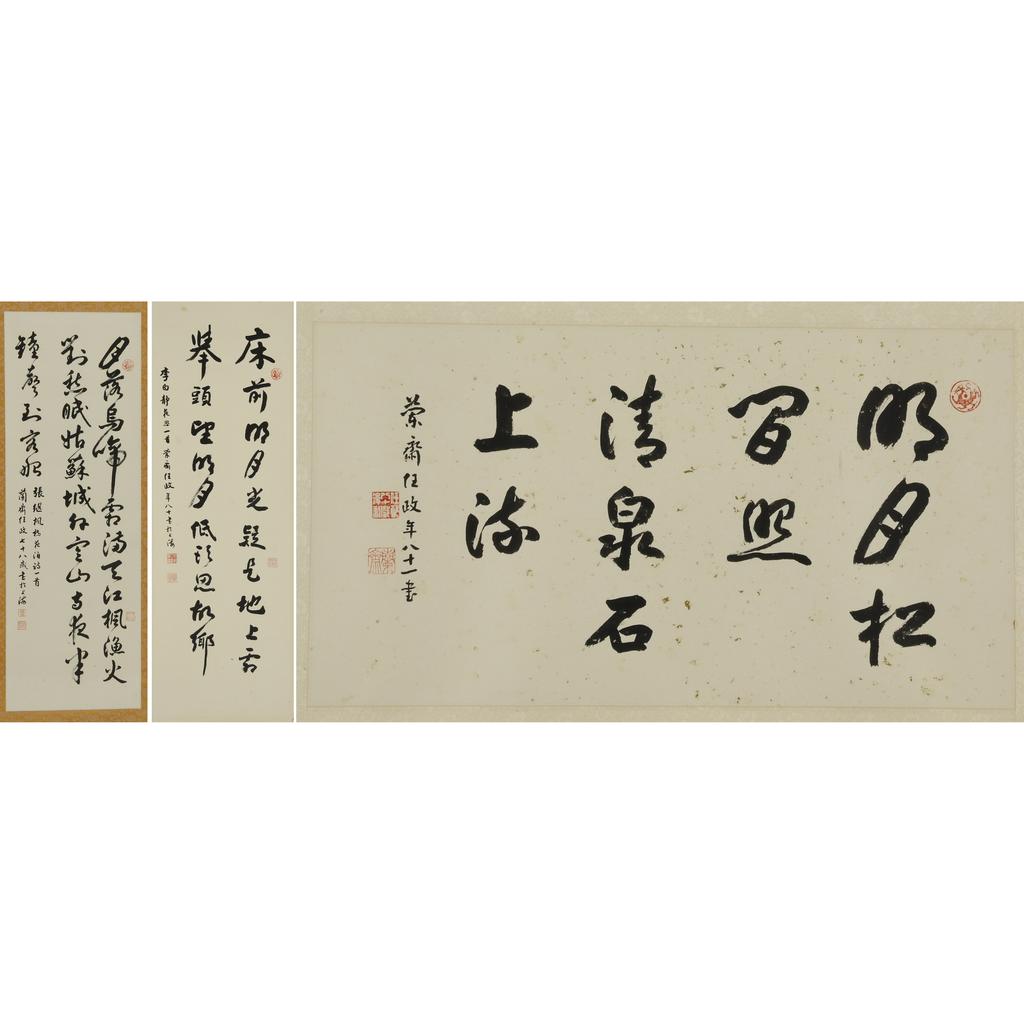 月落烏啼霜滿天江楓漁火
對愁眠姑蘇城外寒山寺夜半
鐘聲到客船
張繼楓橋夜泊詩一首
蘭齋任政七十八歲書於上海
床前明月光疑是地上霜
舉頭望明月低頭思故鄉
李白靜夜思一首蘭齋任政年八十書於上海
明月松
間照
清泉石
上流
蘭齋任政年八十一書